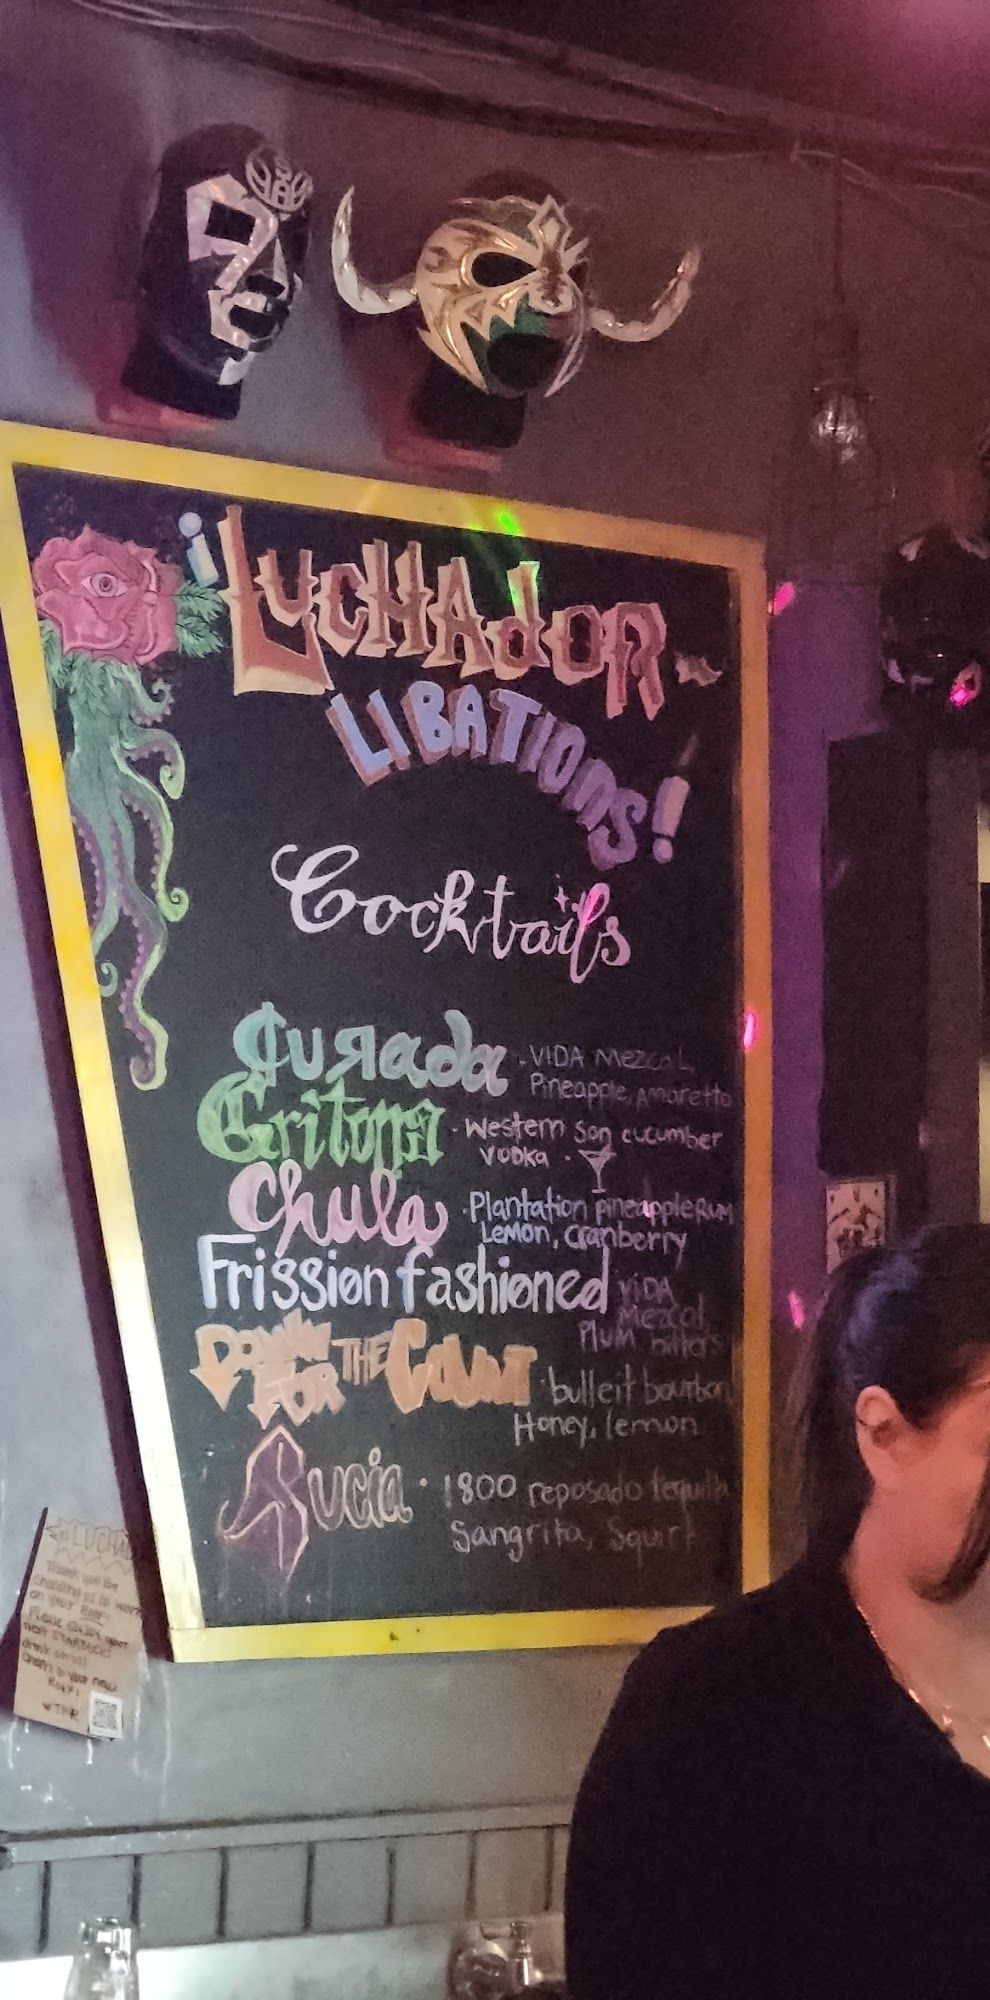 ¡LUCHADOR
LIBATIONS!
Cocktails
Curada · VIDA Mezcal,
Pineapple, Amaretto
Gritona · Western Son cucumber
VODKA ·
Chula · Plantation pineapple Rum
Lemon, cranberry
Frission fashioned VIDA
Mezcal,
Plum bitters
DOWN FOR THE COUNT · bulleit bourbon,
Honey, lemon
Rucia · 1800 reposado tequila
Sangrita, Squirt
el LUCHADOR
Thank you for
choosing us to work
on your Roof!
Please enjoy your
next STARBUCKS
drink on us!
Cheers to your new
Roof!